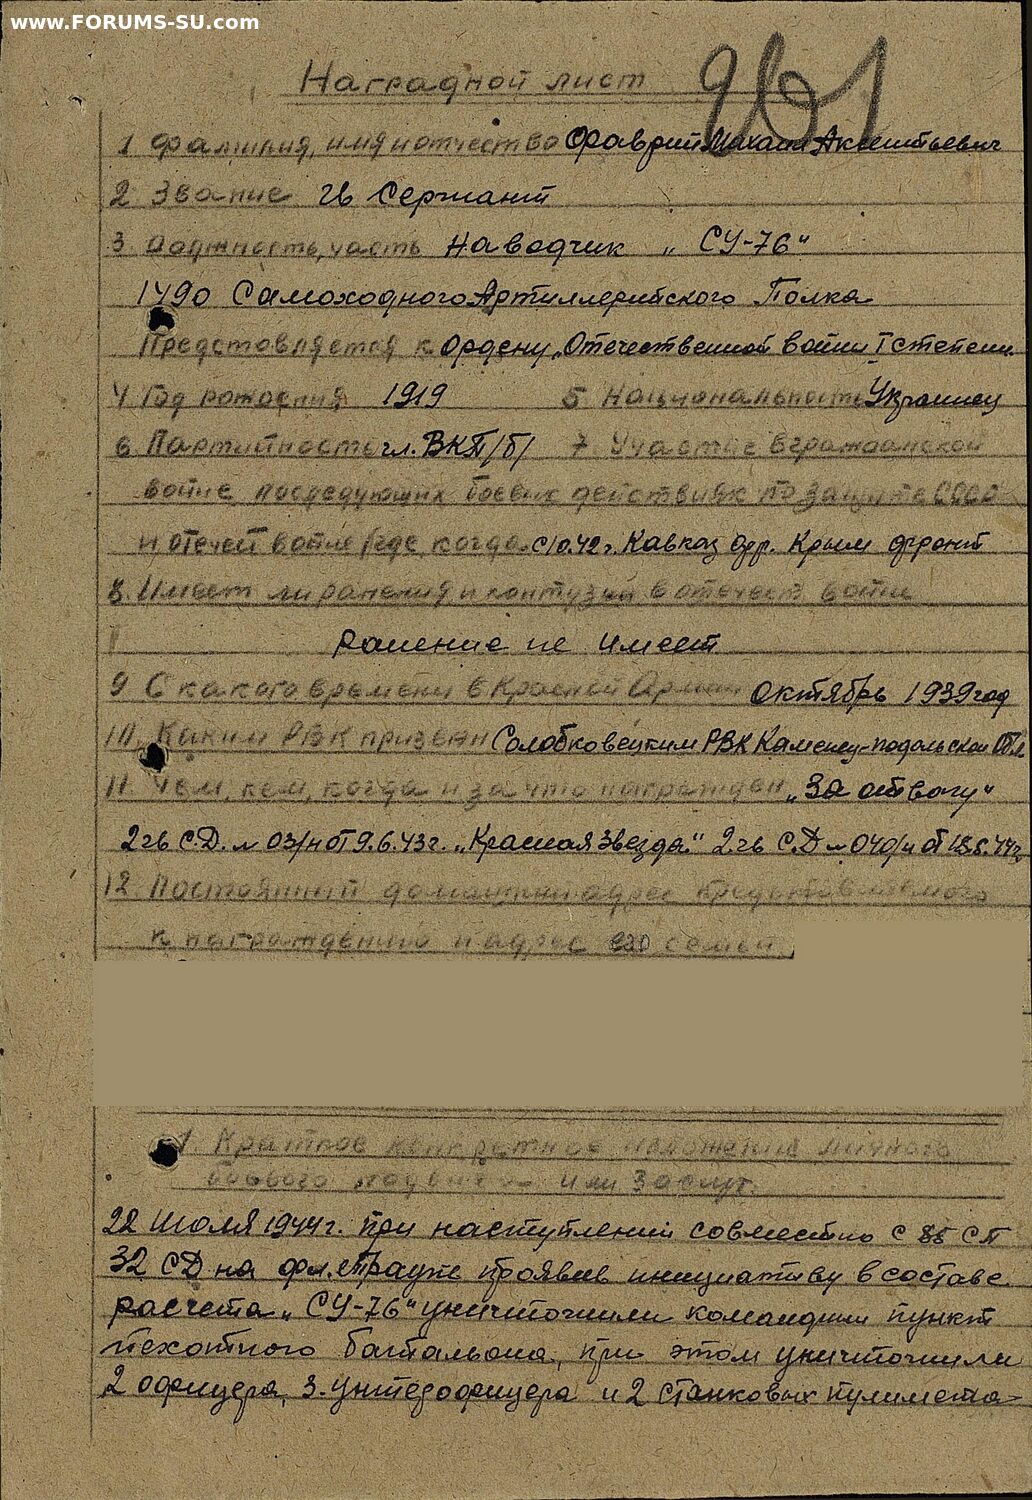 www.FORUMS-SU.com
Наградной лист
261
1 Фамилия, имя и отчество Фаврий Михаил Аксентьевич
2 Звание гв Сержант
3 Должность, часть Наводчик „СУ-76"
1490 Самоходного Артиллерийского Полка
Представляется к Ордену „Отечественной войны I степени
4 Год рождения 1919 5 Национальность Украинец
6 Партийность чл. ВКП/б/ 7 Участие в гражданской
войне, последующих боевых действиях по защите СССР
и отечеств войне где, когда с 10.42 г. Кавказ Крым фронт
8. Имеет ли ранения и контузии в отечест войне
ранение не имеет
9 С какого времени в Красной Армии октябрь 1939 год
10. Каким РВК призван Солобковецким РВК Каменец-подольской Обл
11 Чем, кем, когда и за что награжден „За отвагу"
2 гв С.Д. № 03/н от 9.6.43 г. „Красная звезда" 2 гв С.Д № 040/н от
12 Постоянный домашний адрес представляемого
к награждению и адрес его семьи
1. Краткое конкретное изложение личного
боевого подвига или заслуг.
22 июля 1944 г. при наступлении совместно с СП
32 СД на проявив инициативу в составе
расчета „СУ-76" уничтожили командный пункт
пехотного батальона, при этом уничтожили
2 офицера, 3. унтедофицера и 2 станковых пулимета-